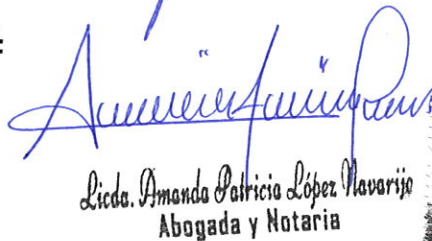 :
Licda. Amanda Patricia López Navarijo
Abogada y Notaria